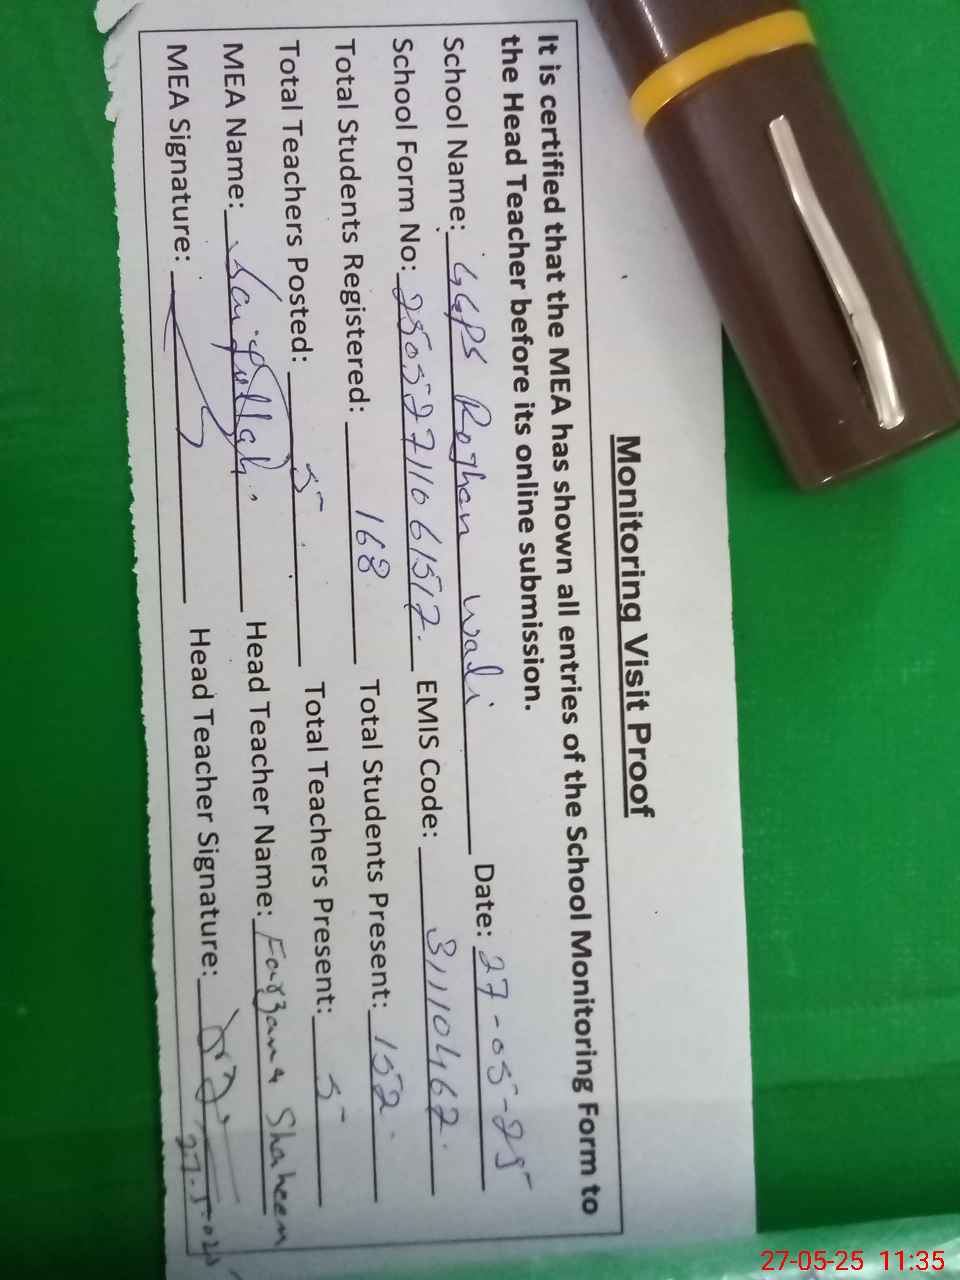 Monitoring Visit Proof
It is certified that the MEA has shown all entries of the School Monitoring Form to
the Head Teacher before its online submission.
School Name: GGPS Rojhan wali Date: 27-05-25
School Form No: 25052711061512. EMIS Code: 31110462.
Total Students Registered: 168 Total Students Present: 152.
Total Teachers Posted: 5 Total Teachers Present: 5
MEA Name: Saifullah. Head Teacher Name: Farzana Shaheen
MEA Signature: Head Teacher Signature:
27-05-25 11:35